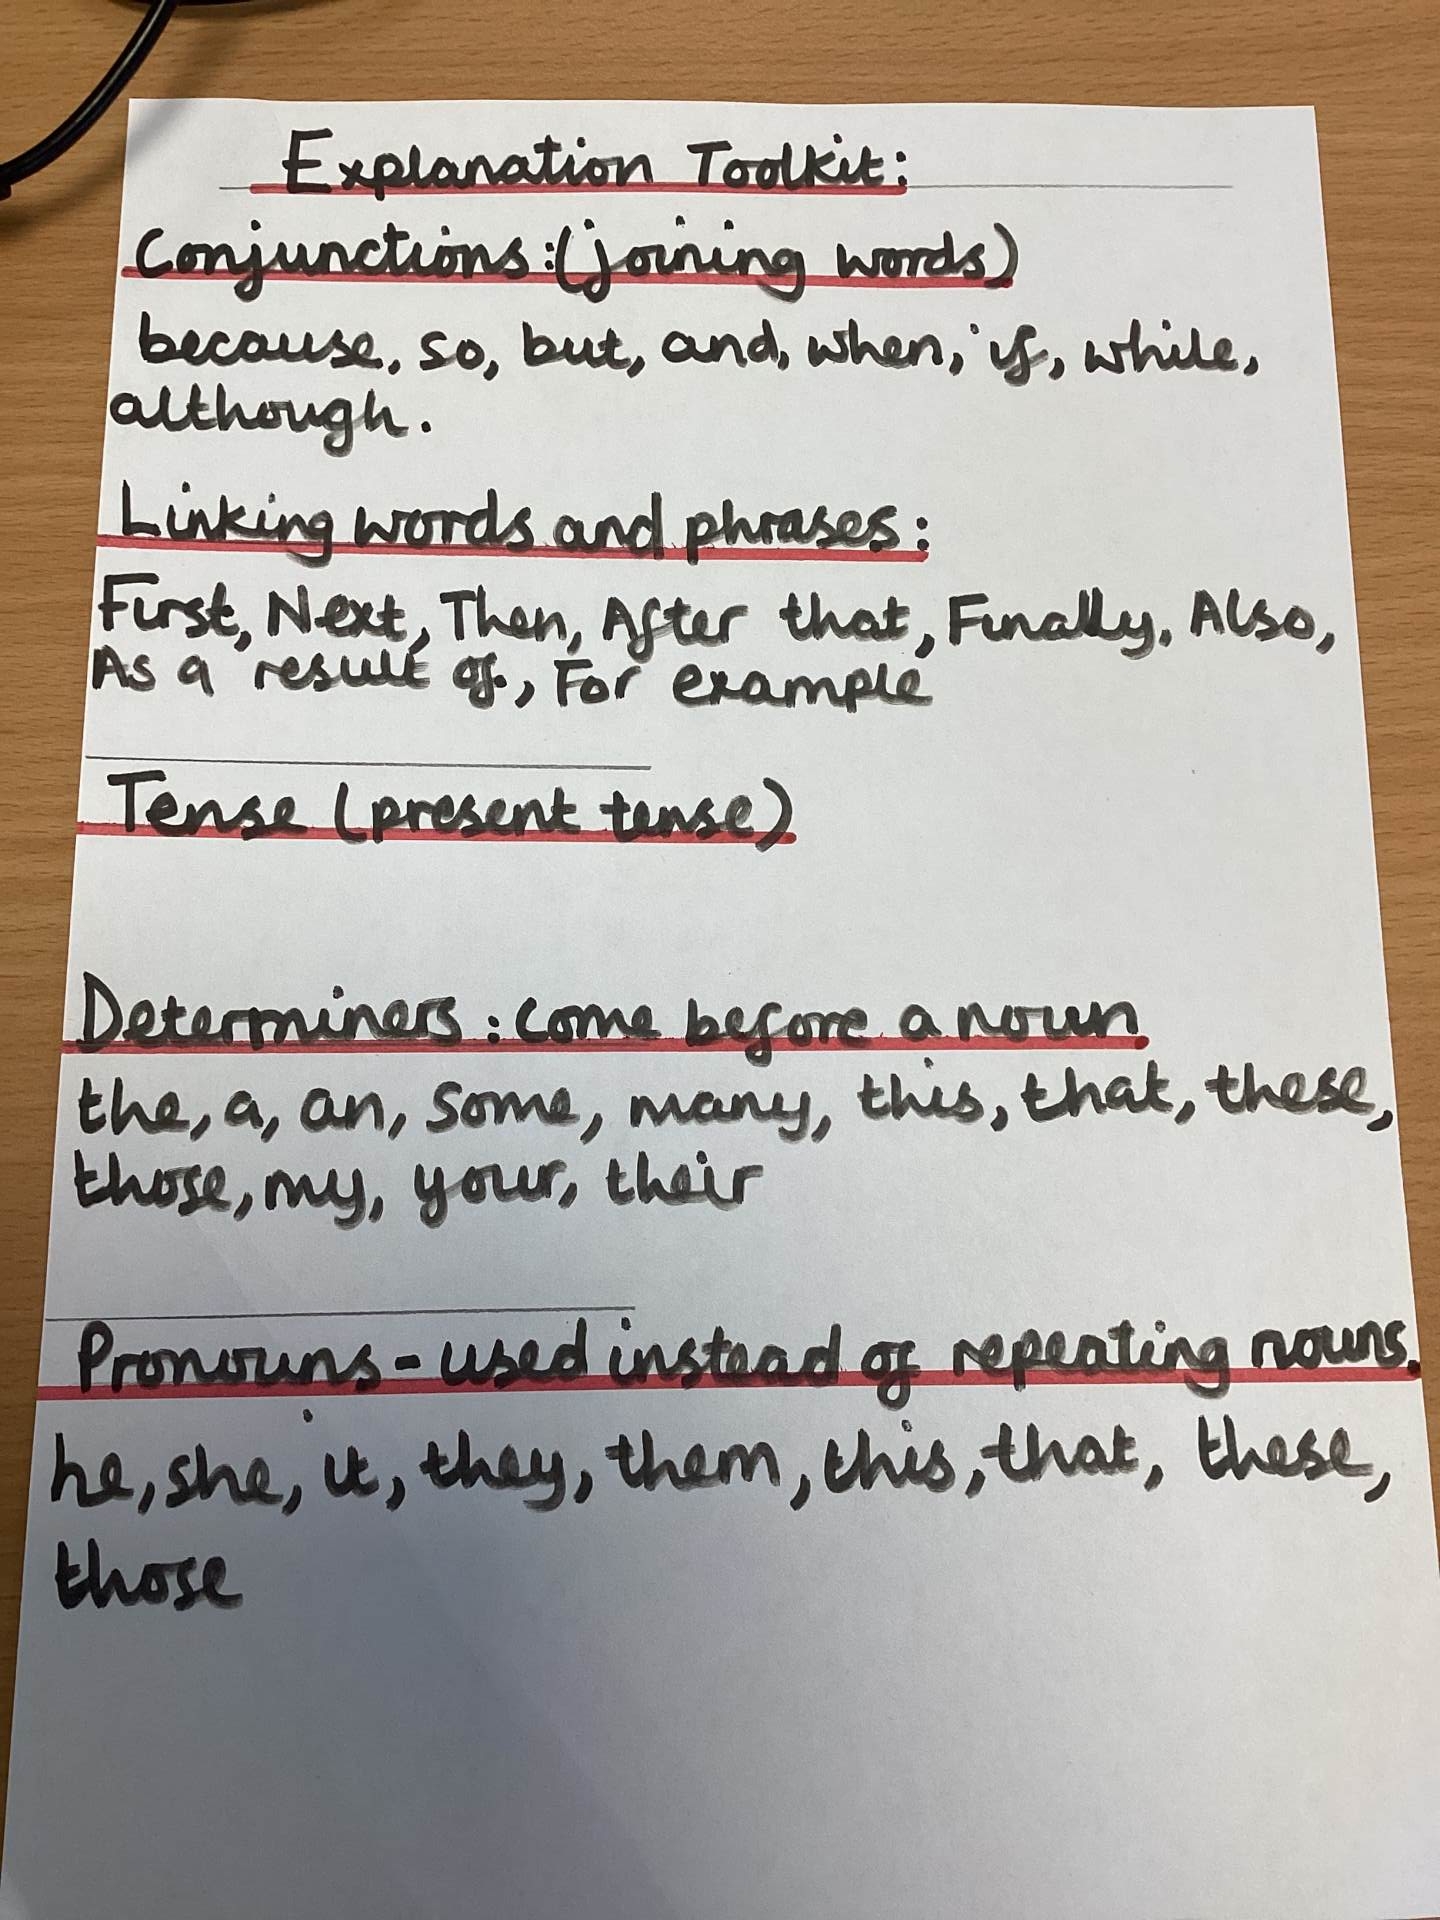 Explanation Toolkit:
Conjunctions:(joining words)
because, so, but, and, when, if, while,
although.
Linking words and phrases:
First, Next, Then, After that, Finally, Also,
As a result of, For example
Tense (present tense)
Determiners: come before a noun
the, a, an, some, many, this, that, these,
those, my, your, their
Pronouns - used instead of repeating nouns.
he, she, it, they, them, this, that, these,
those